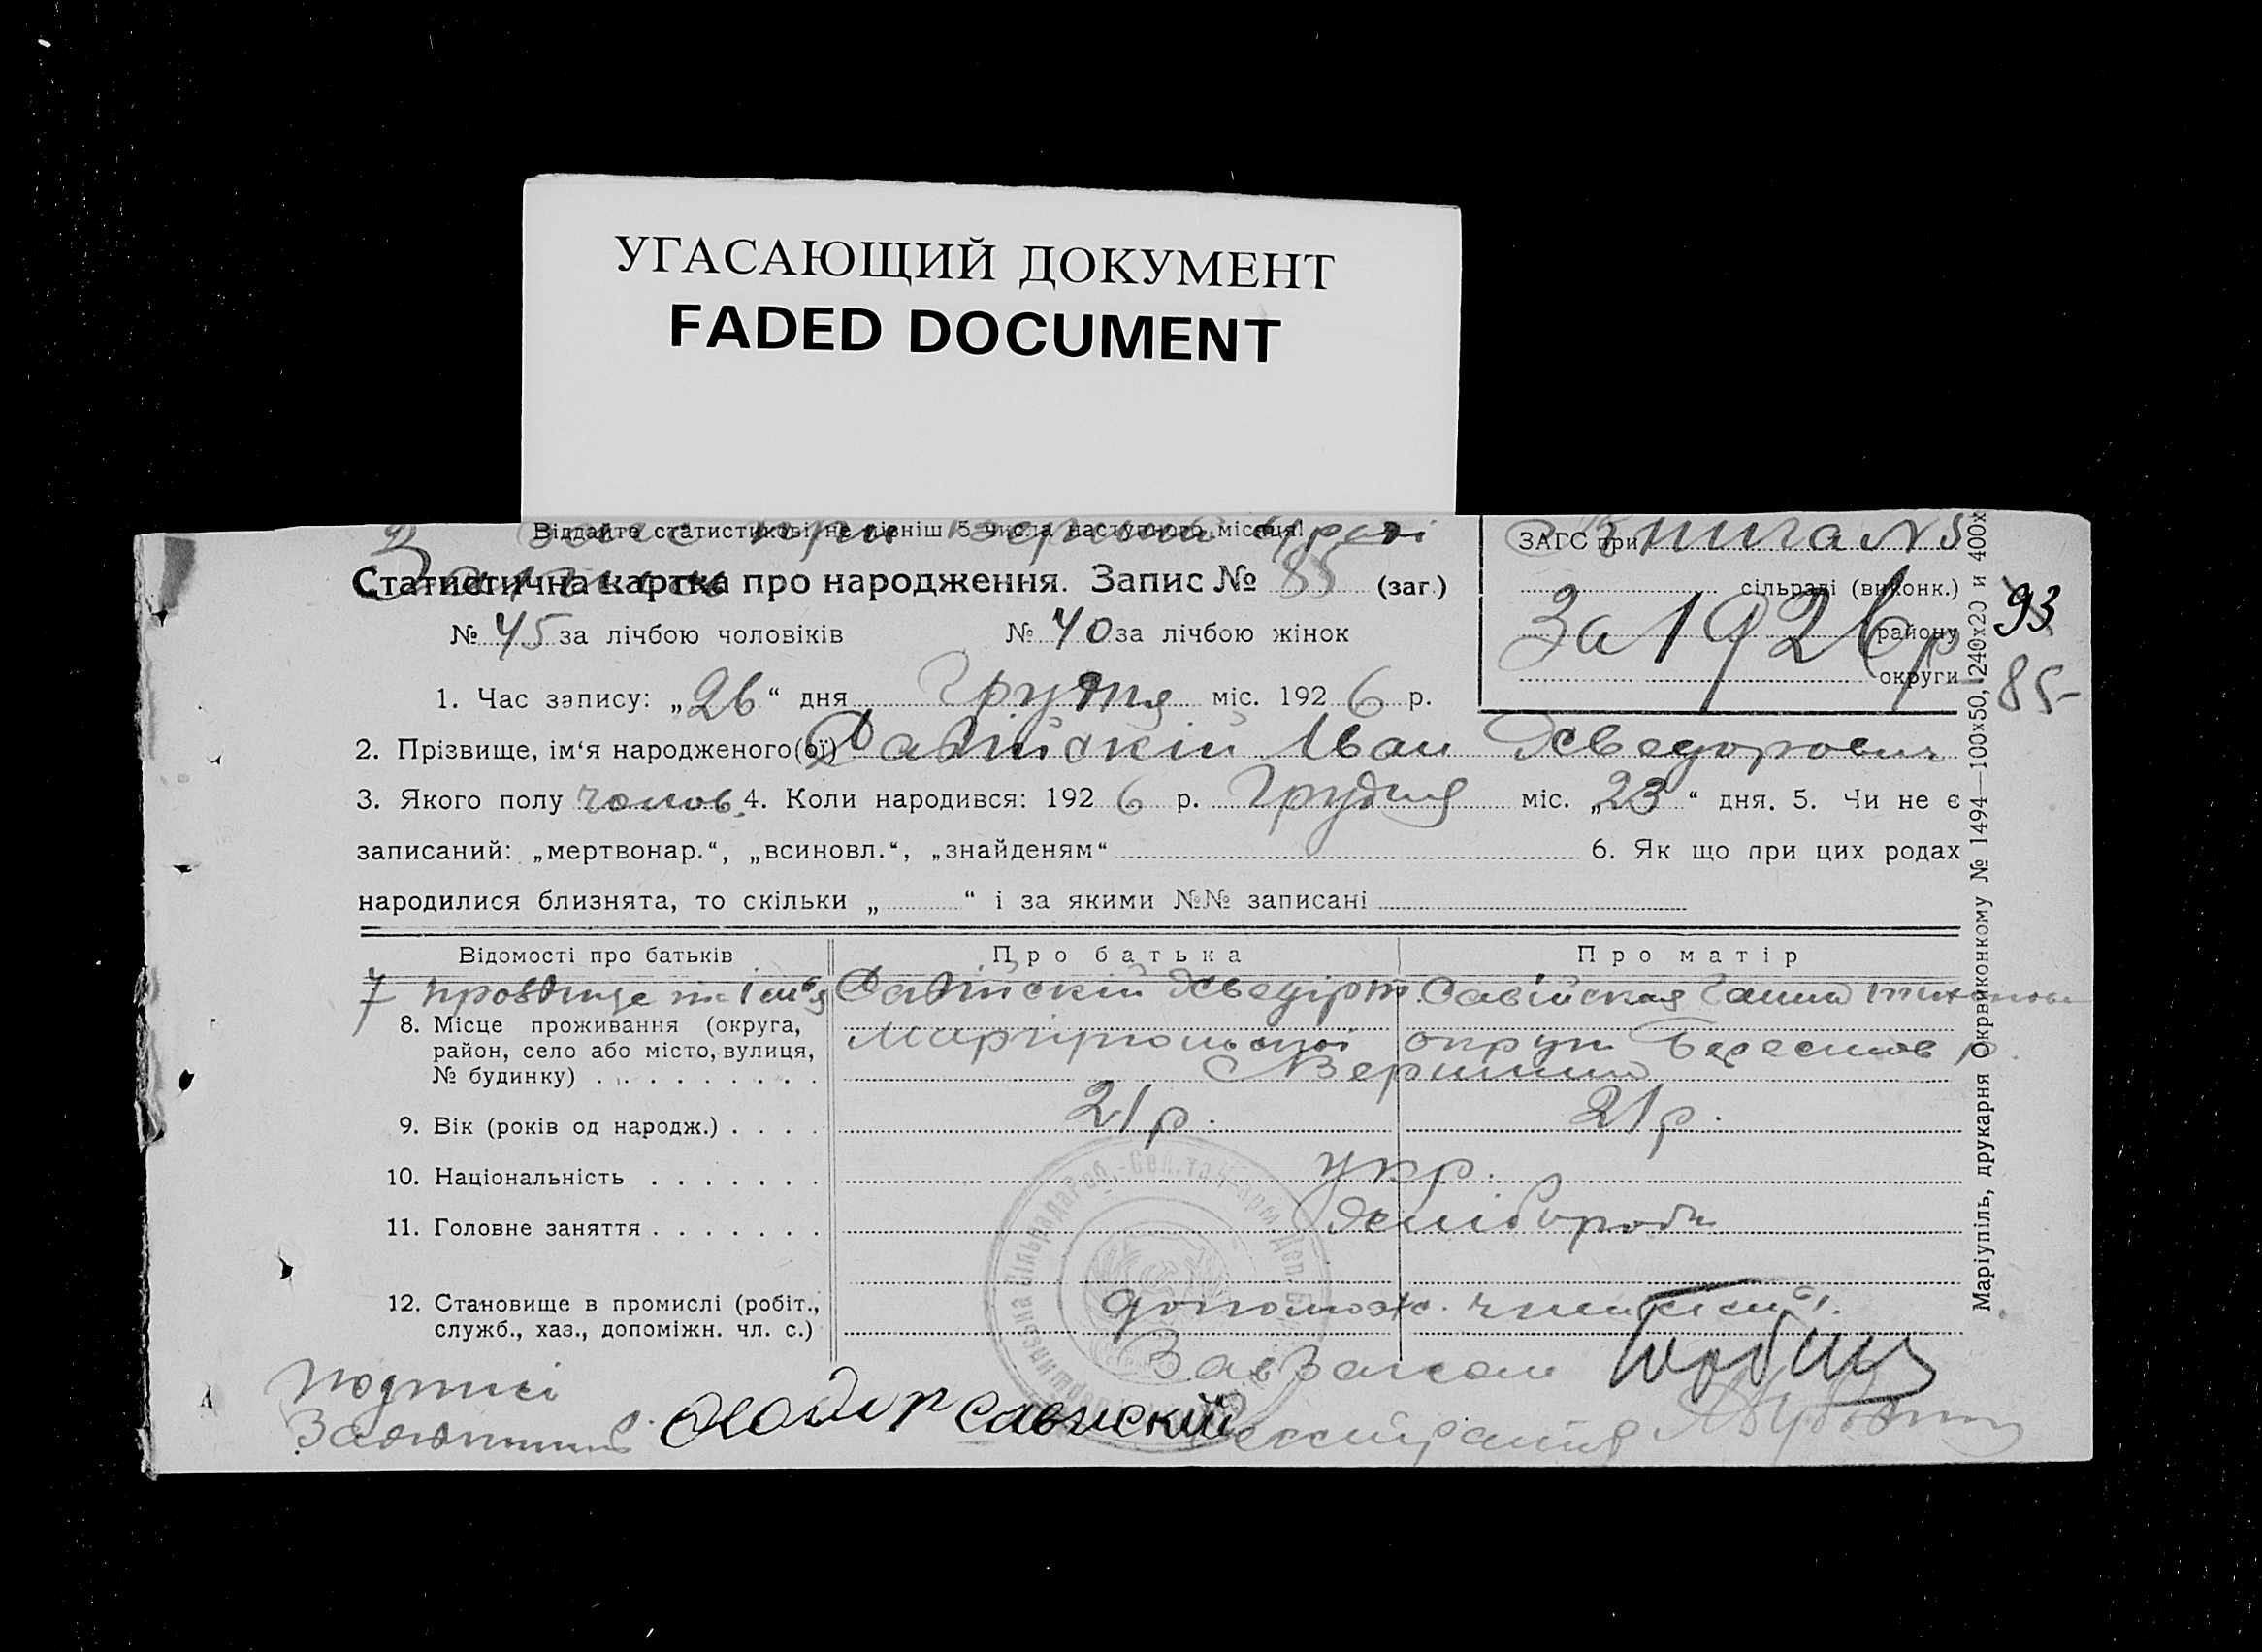 УГАСАЮЩИЙ ДОКУМЕНТ
FADED DOCUMENT
Віддайте статистикові не пізніш 5 числа наступного місяця!
Статистична картка про народження. Запис № 85 (заг.)
№ 45 за лічбою чоловіків № 40 за лічбою жінок
ЗАГС при Книга № 5
сільраді (виконк.)
За 1926 р
району
округи
93
85
1. Час запису: „26“ дня Грудня міс. 1926 р.
2. Прізвище, ім‘я народженого(ої) Савійский Іван
3. Якого полу чолов. 4. Коли народився: 1926 р. Грудня міс. „23“ дня. 5. Чи не є
записаний: „мертвонар.“, „всиновл.“, „знайденям“ 6. Як що при цих родах
народилися близнята, то скільки „ “ і за якими №№ записані
Відомості про батьків Про батька Про матір
7 Савійский Савійская Ганна
8. Місце проживання (округа,
район, село або місто, вулиця,
№ будинку) Маріупольської округи
9. Вік (років од народж.) 21 р. 21 р.
10. Національність укр.
11. Головне заняття хлібороби
12. Становище в промислі (робіт.,
служб., хаз., допоміжн. чл. с.) допомож.
Завзагсом
подписі
Савиский
Маріупіль, друкарня Окрвиконкому № 1494—100х50, 240х20 и 400х